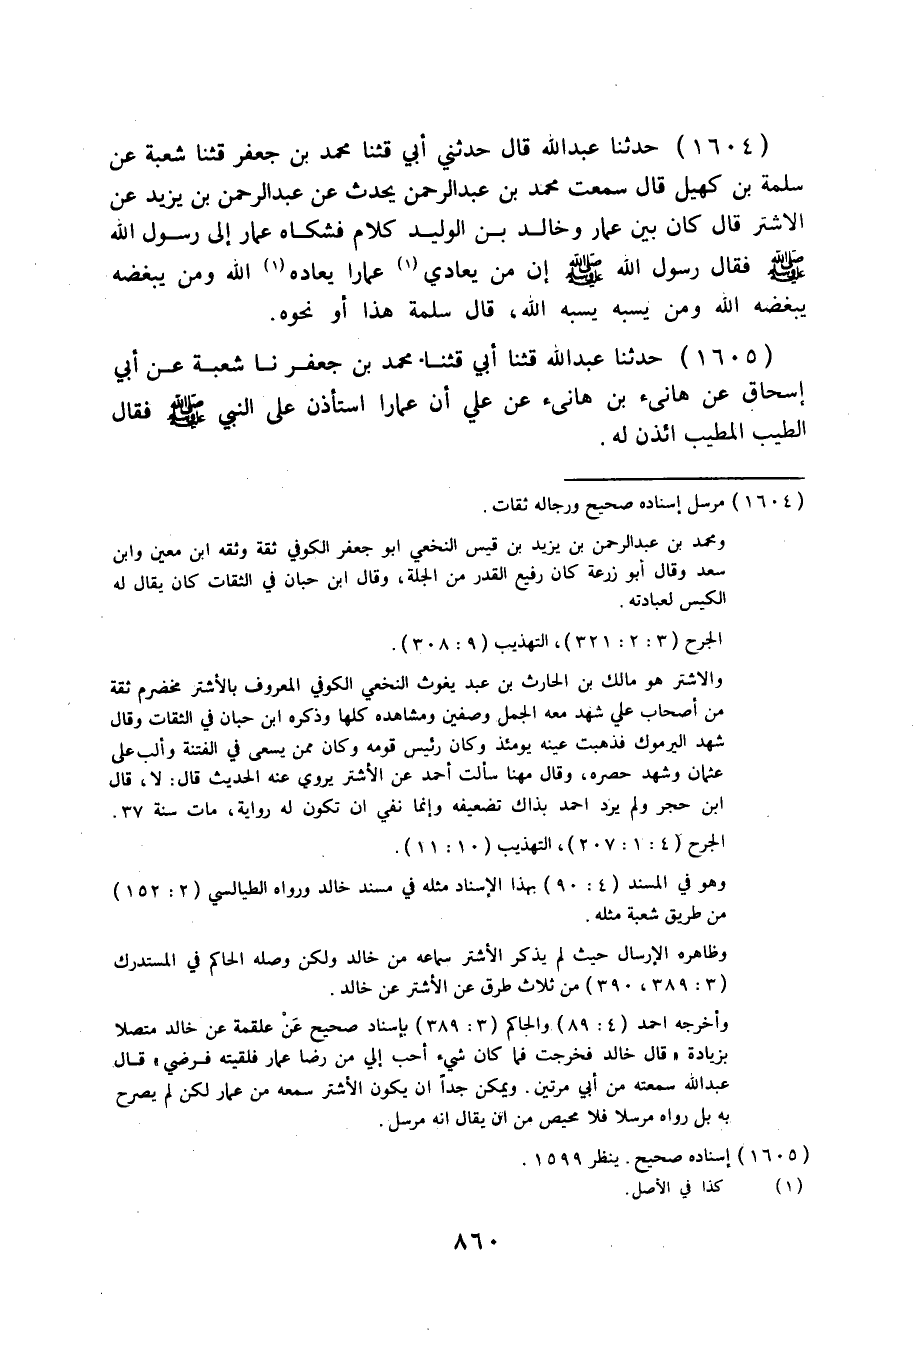 (١٦٠٤) حدثنا عبدالله قال حدثني أبي قثنا محمد بن جعفر قثنا شعبة عن
سلمة بن كهيل قال سمعت محمد بن عبدالرحمن يحدث عن عبدالرحمن بن يزيد عن
الاشتر قال كان بين عمار وخالد بن الوليد كلام فشكاه عمار إلى رسول الله
ﷺ فقال رسول الله ﷺ إن من يعادي (١) عمارا يعاده (١) الله ومن يبغضه
يبغضه الله ومن يسبه يسبه الله، قال سلمة هذا أو نحوه.
(١٦٠٥) حدثنا عبدالله قثنا أبي قثنا محمد بن جعفر نا شعبة عن أبي
إسحاق عن هانىء بن هانىء عن علي أن عمارا استأذن على النبي ﷺ فقال
الطيب المطيب ائذن له.
(١٦٠٤) مرسل إسناده صحيح ورجاله ثقات.
ومحمد بن عبدالرحمن بن يزيد بن قيس النخعي ابو جعفر الكوفي ثقة وثقه ابن معين وابن
سعد وقال أبو زرعة كان رفيع القدر من الجلة، وقال ابن حبان في الثقات كان يقال له
الكيس لعبادته.
الجرح (٣: ٢: ٣٢١)، التهذيب (٩: ٣٠٨).
والاشتر هو مالك بن الحارث بن عبد يغوث النخعي الكوفي المعروف بالأشتر مخضرم ثقة
من أصحاب علي شهد معه الجمل وصفين ومشاهده كلها وذكره ابن حبان في الثقات وقال
شهد اليرموك فذهبت عينه يومئذ وكان رئيس قومه وكان ممن يسعى في الفتنة وألب على
عثمان وشهد حصره، وقال مهنا سألت أحمد عن الأشتر يروي عنه الحديث قال: لا، قال
ابن حجر ولم يرد احمد بذاك تضعيفه وإنما نفي ان تكون له رواية، مات سنة ٣٧.
الجرح (٤: ١: ٢٠٧)، التهذيب (١٠: ١١).
وهو في المسند (٤: ٩٠) بهذا الإسناد مثله في مسند خالد ورواه الطيالسي (٢: ١٥٢)
من طريق شعبة مثله.
وظاهره الإرسال حيث لم يذكر الأشتر سماعه من خالد ولكن وصله الحاكم في المستدرك
(٣: ٣٨٩، ٣٩٠) من ثلاث طرق عن الأشتر عن خالد.
وأخرجه احمد (٤: ٨٩) والحاكم (٣: ٣٨٩) بإسناد صحيح عَنْ علقمة عن خالد متصلا
بزيادة «قال خالد فخرجت فما كان شيء أحب إلي من رضا عمار فلقيته فرضي» قال
عبدالله سمعته من أبي مرتين. ويمكن جداً ان يكون الأشتر سمعه من عمار لكن لم يصرح
به بل رواه مرسلا فلا محيص من ان يقال انه مرسل.
(١٦٠٥) إسناده صحيح. ينظر ١٥٩٩.
(١) كذا في الأصل.
٨٦٠